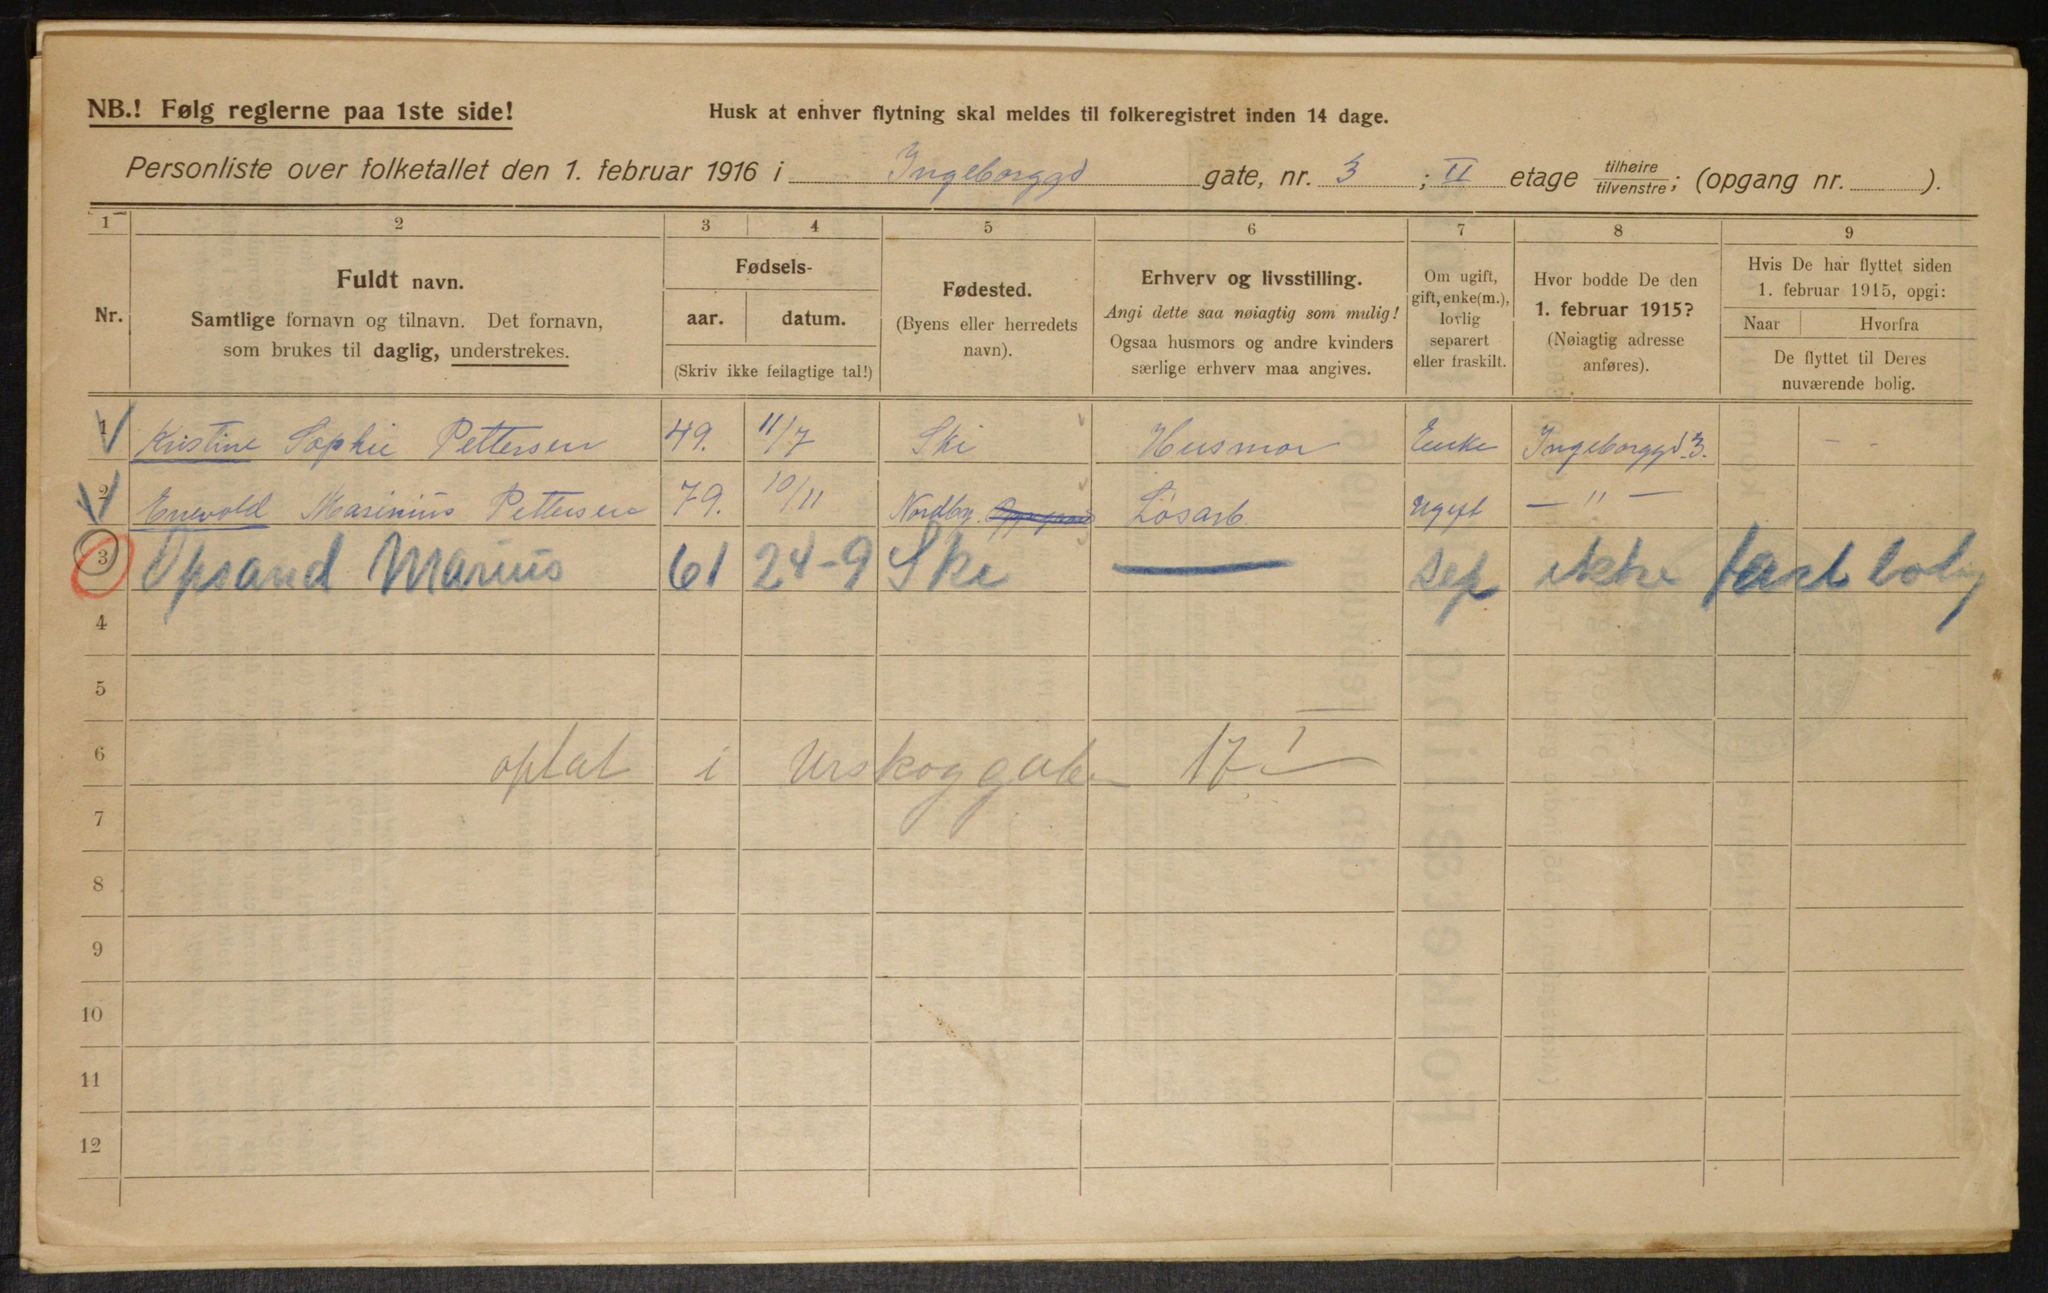 NB.! Følg reglerne paa 1ste side!
Husk at enhver flytning skal meldes til folkeregistret inden 14 dage.
Personliste over folketallet den 1. februar 1916 i Ingeborggd gate, nr. 3 ; II etage tilhøire tilvenstre; (opgang nr. ).
1 2 3 4 5 6 7 8 9
Nr.
Fuldt navn.
Samtlige fornavn og tilnavn. Det fornavn,
som brukes til daglig, understrekes.
Fødsels-
aar. datum.
(Skriv ikke feilagtige tal!)
Fødested.
(Byens eller herredets
navn).
Erhverv og livsstilling.
Angi dette saa nøiagtig som mulig!
Ogsaa husmors og andre kvinders
særlige erhverv maa angives.
Om ugift,
gift, enke(m.),
lovlig
separert
eller fraskilt.
Hvor bodde De den
1. februar 1915?
(Nøiagtig adresse
anføres).
Hvis De har flyttet siden
1. februar 1915, opgi:
Naar Hvorfra
De flyttet til Deres
nuværende bolig.
1 Kristine Sophie Pettersen 49. 11/7 Ski Husmor Enke Ingeborggd. 3. - -
2 Enevold Marinius Pettersen 79. 10/11 Nordby Løsarb. Ugift — " —
3 Opsand Marius 61 24-9 Ski — sep ikke fast bolig
4
5
6 optat i Urskoggaten 17 I
7
8
9
10
11
12